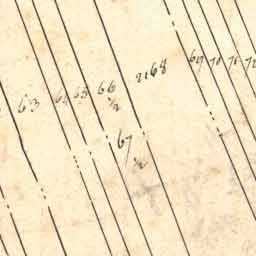 63 64 65 66 ½ 2168 69 70 71 72
67 ½